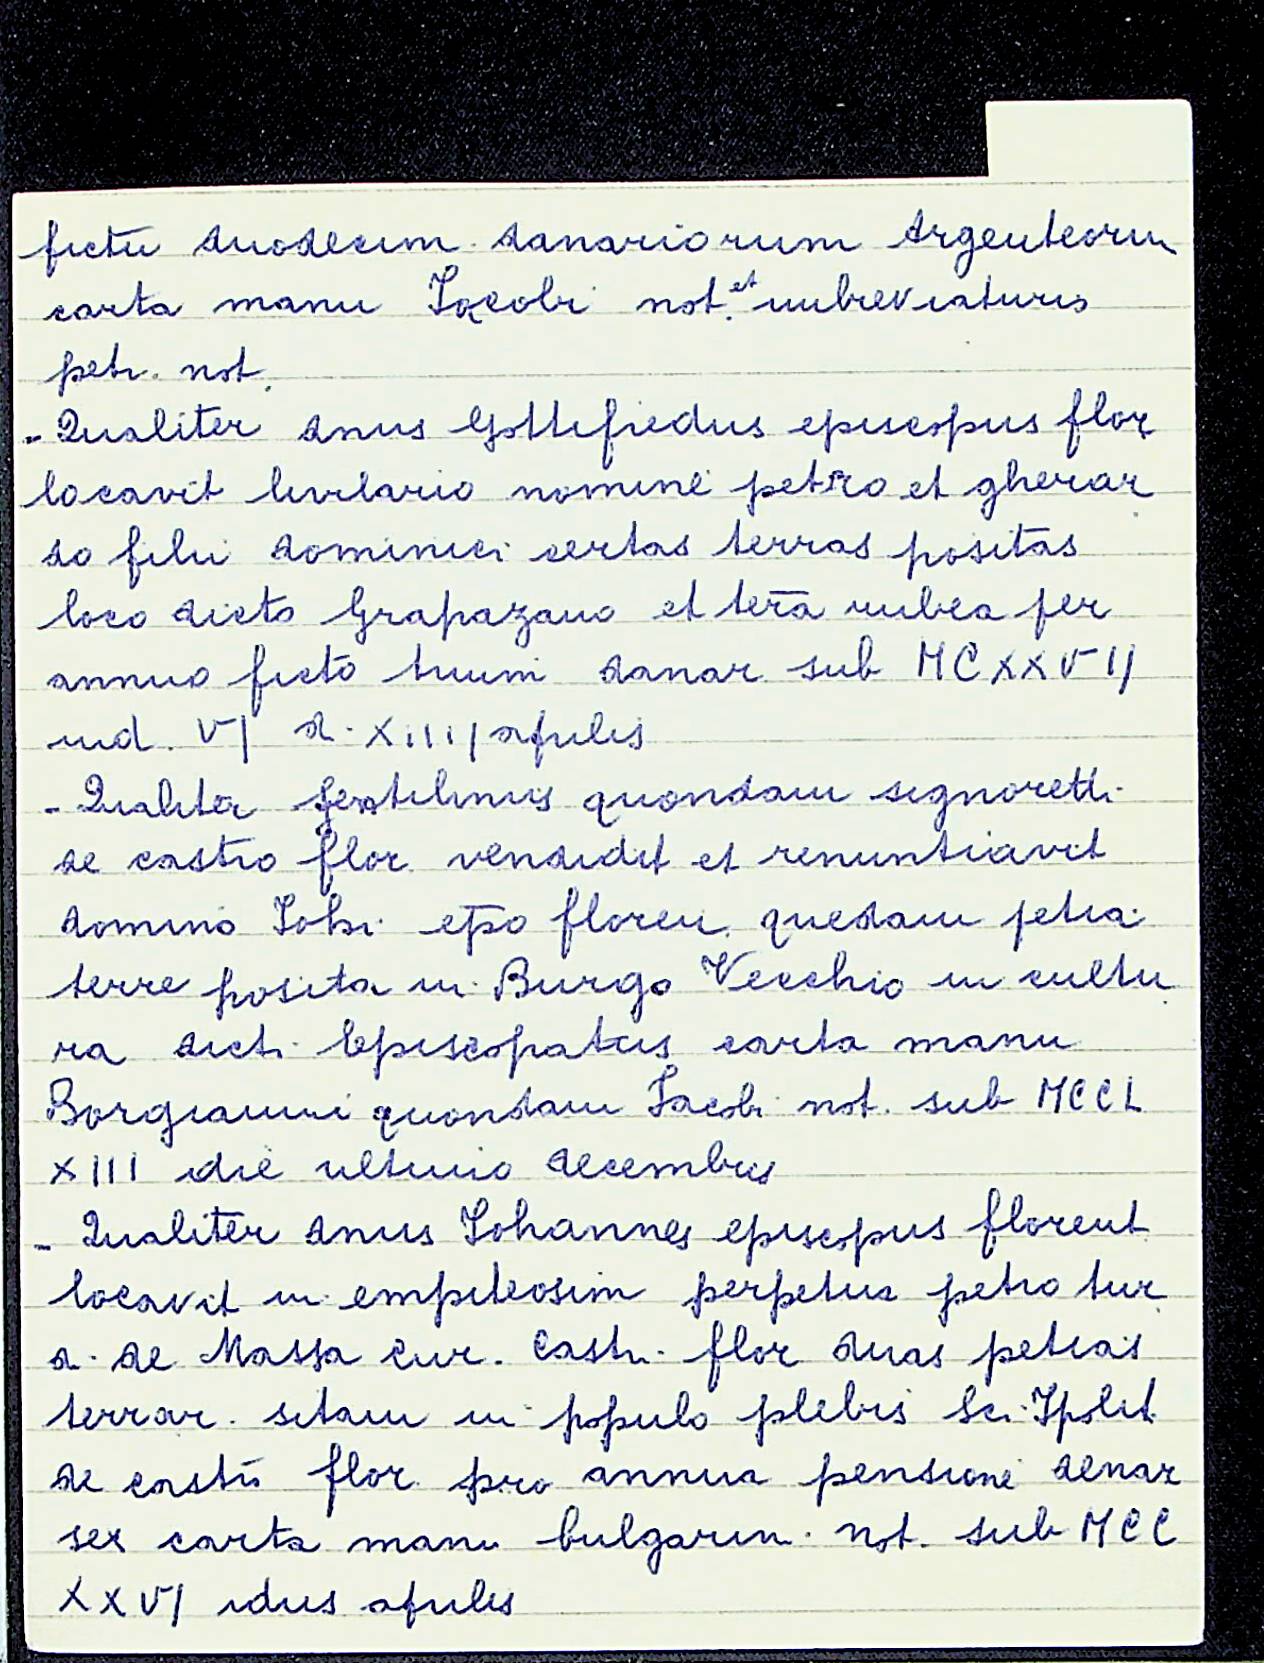 fictū duodecim danariorum Argenteorum
carta manu Iacobi not. et imbreviaturis
petr. not.
- Qualiter dnus Gottifredus episcopus flor
locavit livelario nomine petro et gherar
do filii dominici certas terras positas
loco dicto Grapazano et terā rubea per
annuo ficto trium danar sub MCXXVIJ
ind. VJ d. XIIIJ aprilis
- Qualiter gentilinus quondam signoretti
de castro flor vendidit et renuntiavit
domino Iohi epō floren. quedam petia
terre posita in Burgo Vecchio in cultu
ra dicti Episcopatus carta manu
Borgianni quondam Iacobi not. sub MCCL
XIII die ultimo decembris
- Qualiter dnus Iohannes episcopus florent
locavit in empiteosim perpetua petro tur
d. de Massa cur. Castri flor duas petias
terrar. sitam in populo plebis Sci Ipolit
de castri flor pro annua pensione denar
sex carta manu bulgarin. not. sub MCC
XXVJ idus aprilis